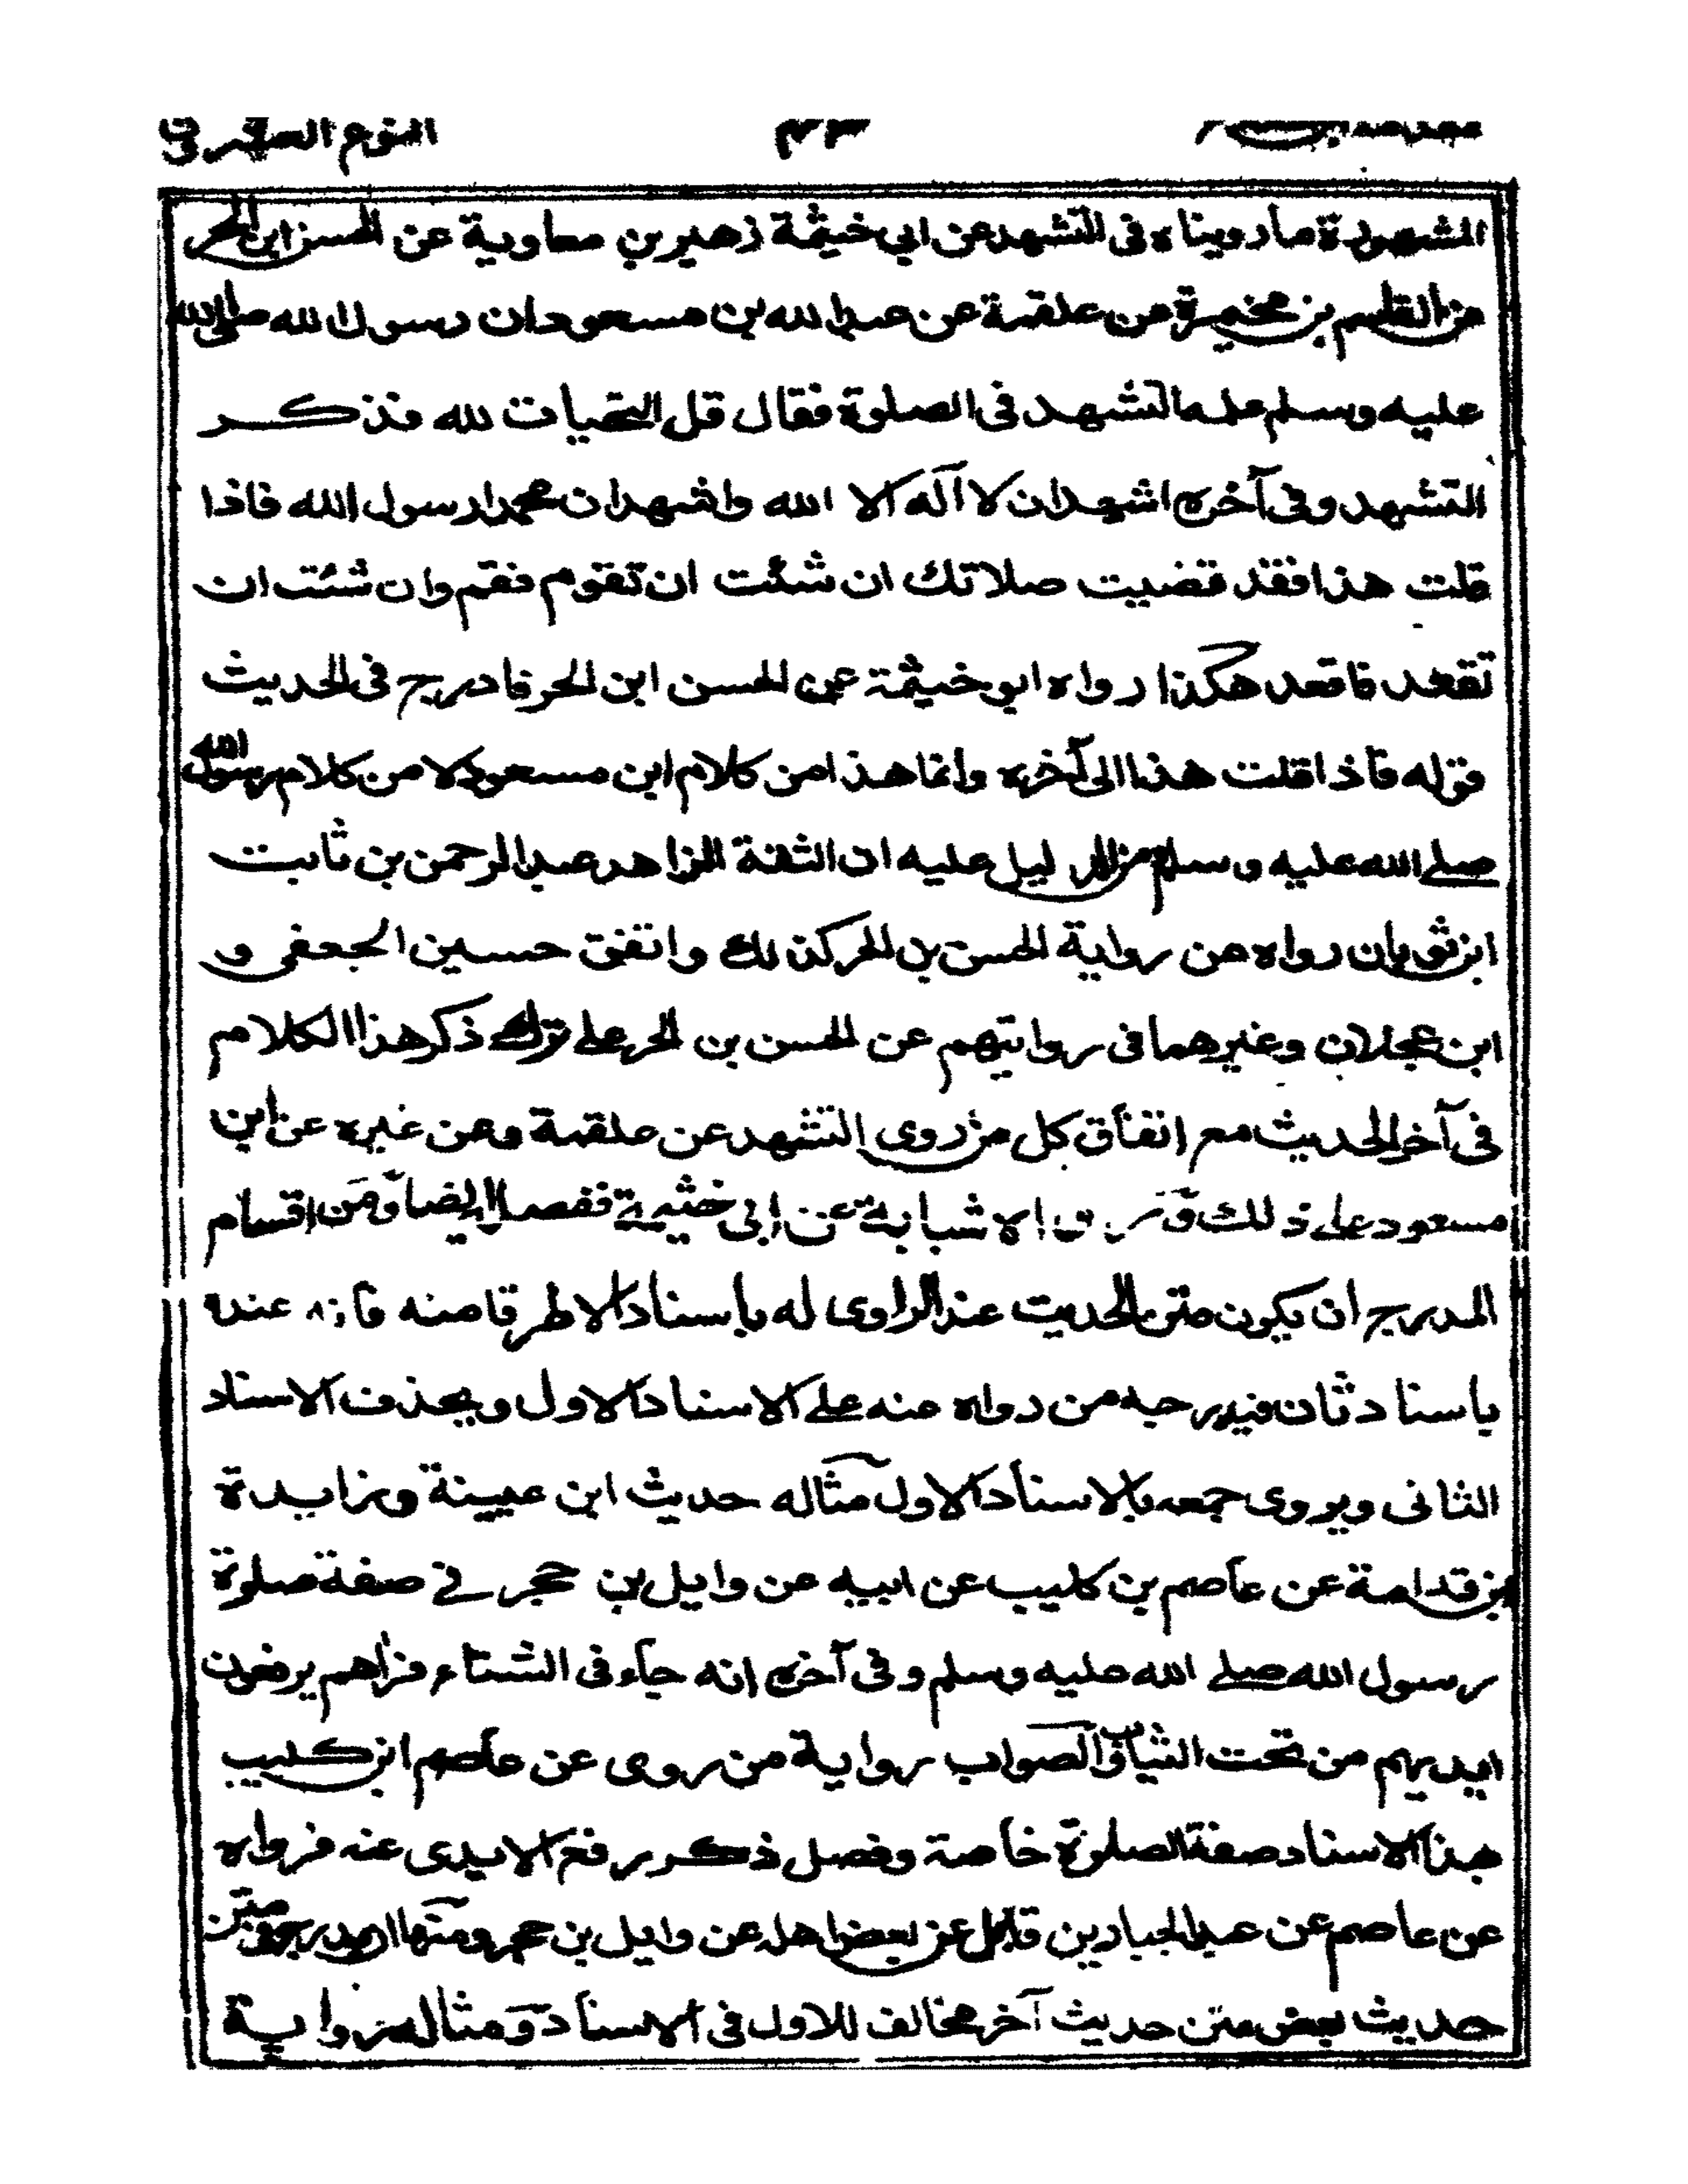 النوع العشرون
المشهورة ما رويناه فى التشهد عن ابي خيثمة زهير بن معاوية عن الحسن ابن الحر
عن القاسم بن مخيمرة عن علقمة عن عبد الله بن مسعود ان رسول الله صلى الله
عليه وسلم علمه التشهد فى الصلوة فقال قل التحيات لله فذكر
التشهد وفى آخره اشهد ان لا آله الا الله واشهد ان محمدا رسول الله فاذا
قلت هذا فقد قضيت صلاتك ان شئت ان تقوم فقم وان شئت ان
تقعد فاقعد هكذا رواه ابو خيثمة عن الحسن ابن الحر فادرج فى الحديث
قوله فاذا قلت هذا الى آخره وانما هذا من كلام ابن مسعود لا من كلام رسول الله
صلے الله عليه وسلم من الدليل عليه ان الثقة الزاهد عبد الرحمن بن ثابت
ابن ثوبان رواه عن رواية الحسن بن الحر كذلك واتفق حسين الجعفى و
ابن عجلان وغيرهما فى روايتهم عن الحسن بن الحر على ترك ذكر هذا الكلام
فى آخر الحديث مع إتفاق كل من روى التشهد عن علقمة وعن غيره عن ابن
مسعود على ذلك شبابة عن ابى خثيمة ففصله ايضا ومن اقسام
المدرج ان يكون متن الحديث عند الراوى له باسناد الا طرفا منه فانه عنده
باسناد ثان فيدرجه من رواه عنه على الاسناد الاول ويحذف الاسناد
الثانى ويروى جمعه بالاسناد الاول مثاله حديث ابن عيينة وزايدة
بن قدامة عن عاصم بن كليب عن ابيه عن وايل بن حجر فے صفة صلوة
رسول الله صلے الله عليه وسلم وفى آخره انه جاء فى الشتاء فراهم يرفعون
ايديهم من تحت الثياب والصواب رواية من روى عن عاصم ابن كليب
بهذا الاسناد صفة الصلوة خاصة وفصل ذكر رفع الايدى عنه فرواه
عن عاصم عن عبد الجبار بن وايل عن بعض اهله عن وايل بن حجر ومنها ان يدرج فى متن
حديث بعض متن حديث آخر مخالف للاول فى الاسناد ومثاله رواية